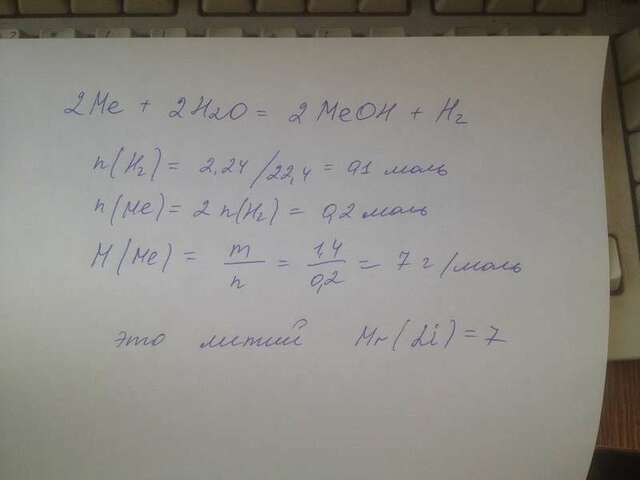 2Me + 2H2O = 2MeOH + H2
n(H2) = 2,24/22,4 = 0,1 моль
n(Me) = 2n(H2) = 0,2 моль
M(Me) = m/n = 1,4/0,2 = 7 г/моль
это литий Mr(Li) = 7